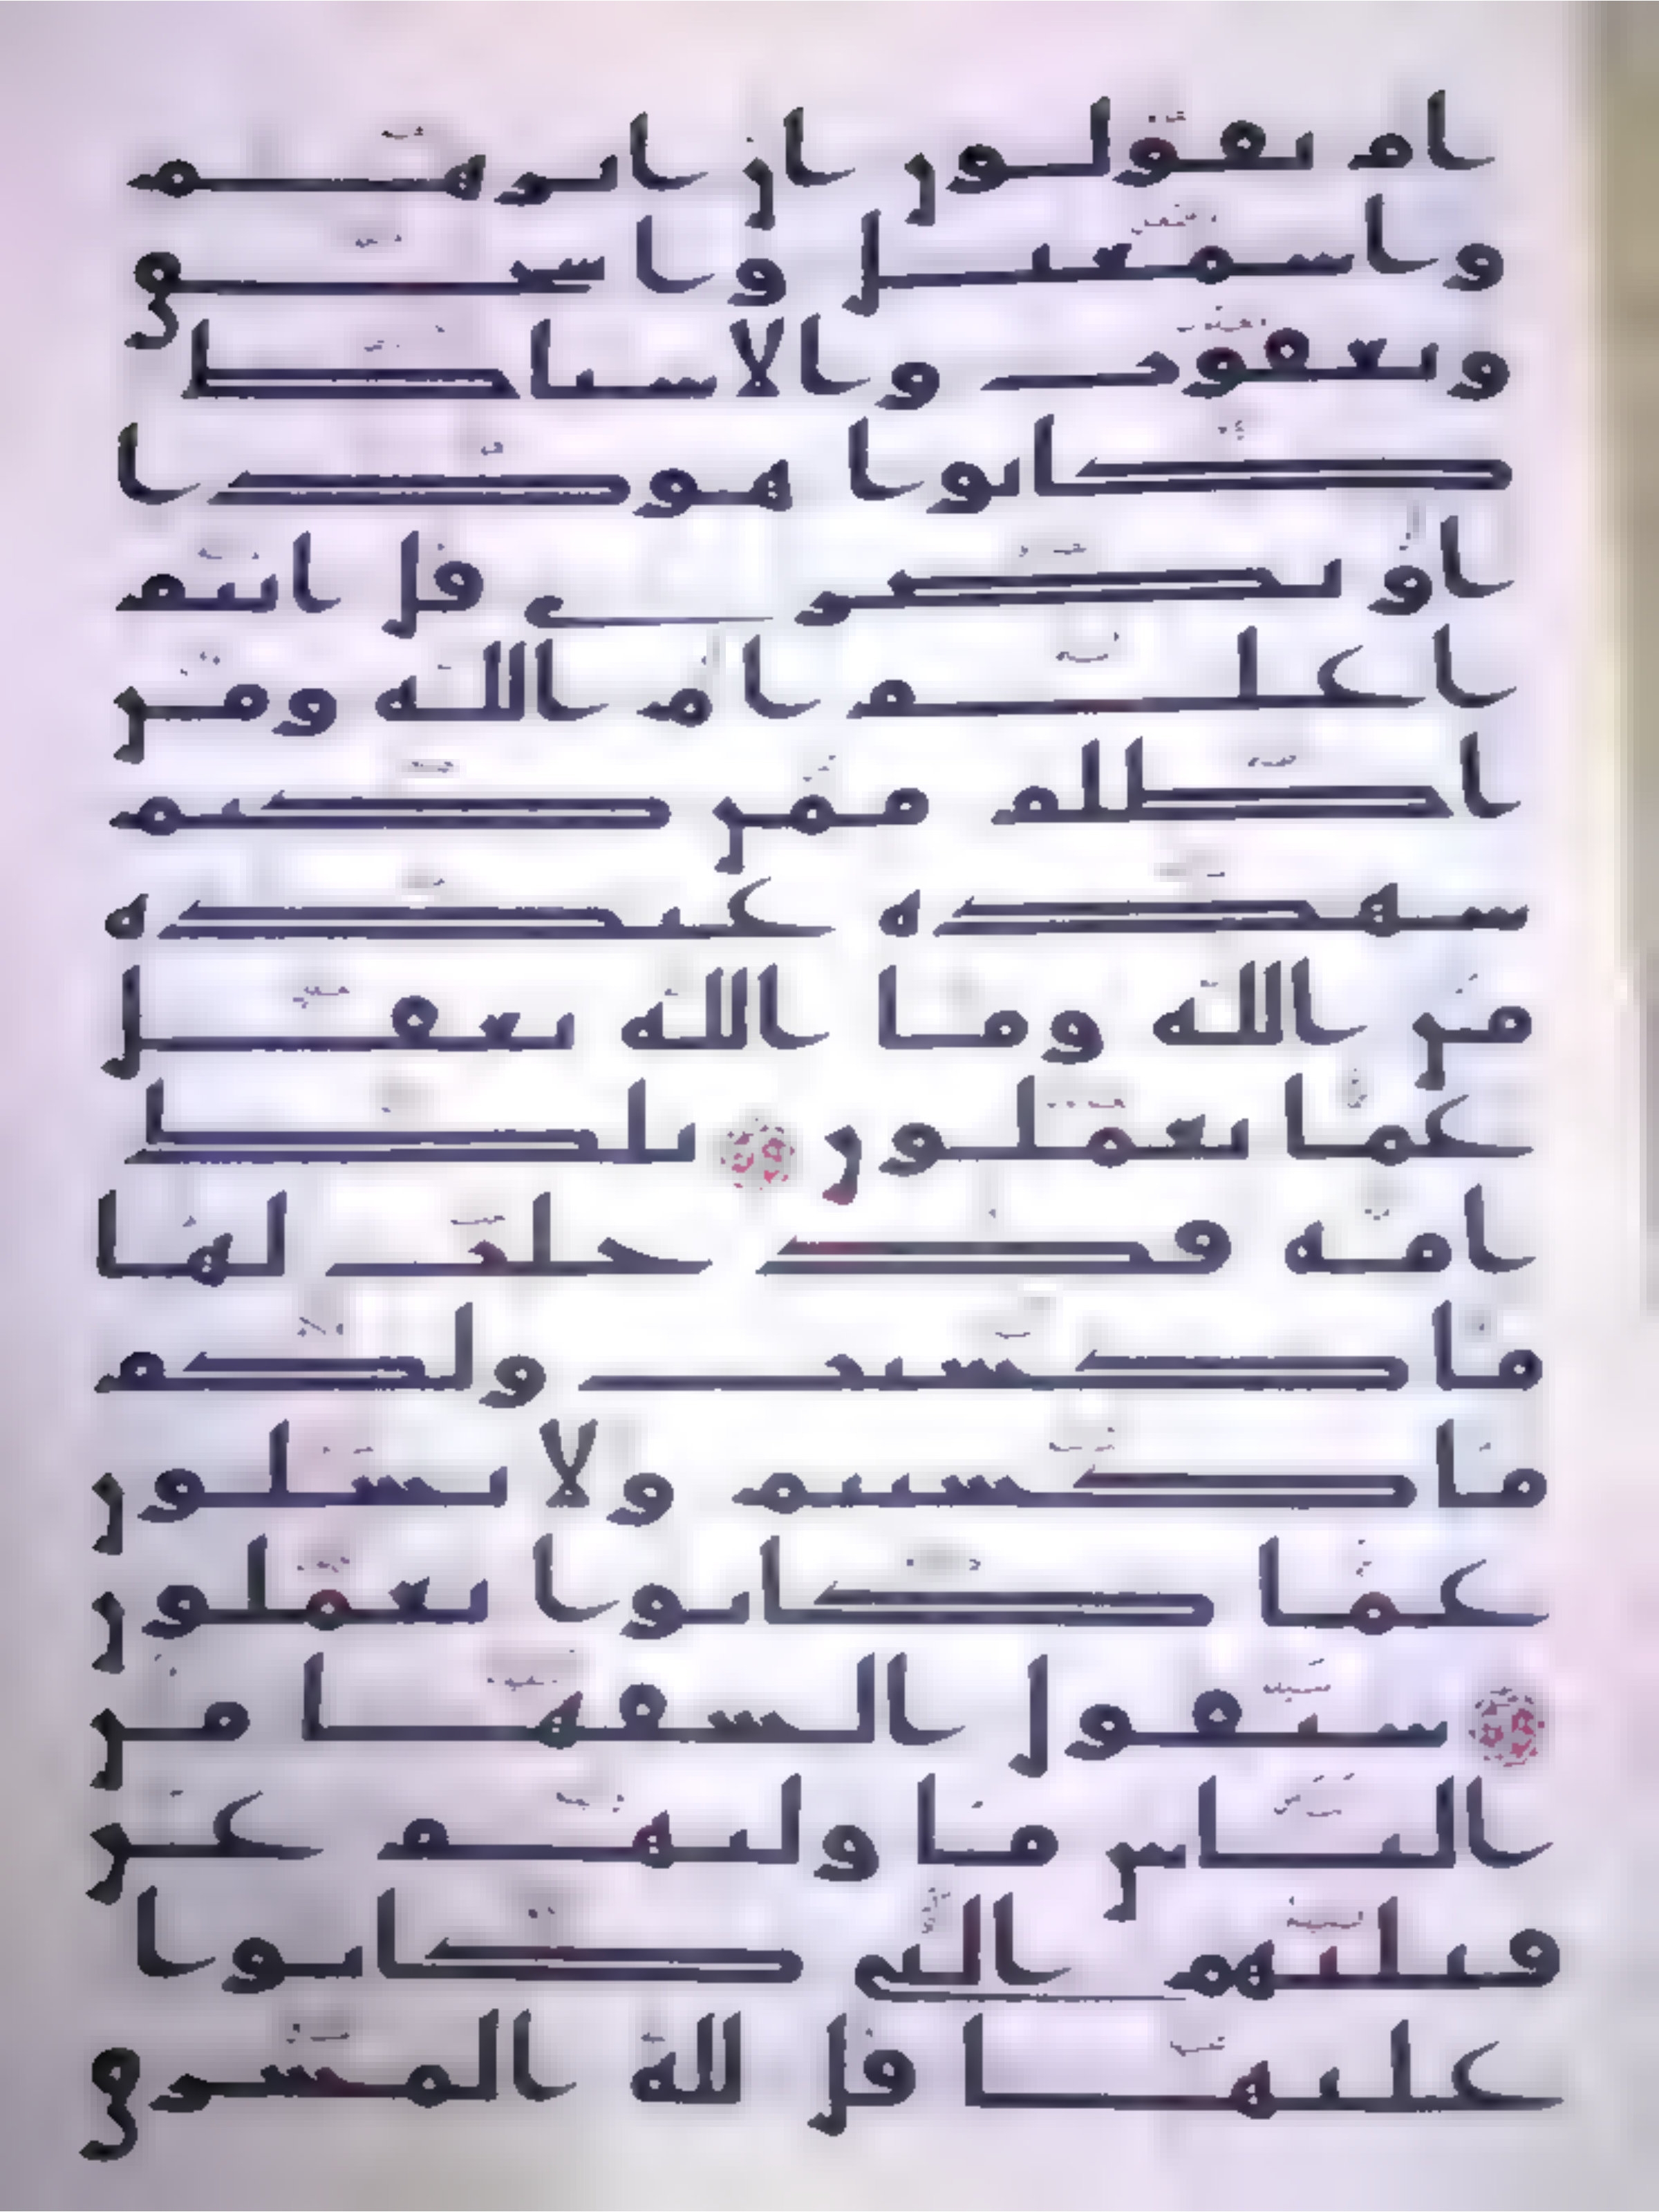 ام يقولون ان ابرهيم
واسمعيل واسحق
ويعقوب والاسباط
كانوا هودا
او نصرى قل انتم
اعلم ام الله ومن
اظلم ممن كتم
شهده عنده
من الله وما الله بغفل
عما تعملون تلك
امه قد خلت لها
ما كسبت ولكم
ما كسبتم ولا تسلون
عما كانوا يعملون
سيقول السفها من
الناس ما وليهم عن
قبلتهم التى كانوا
عليها قل لله المشرق